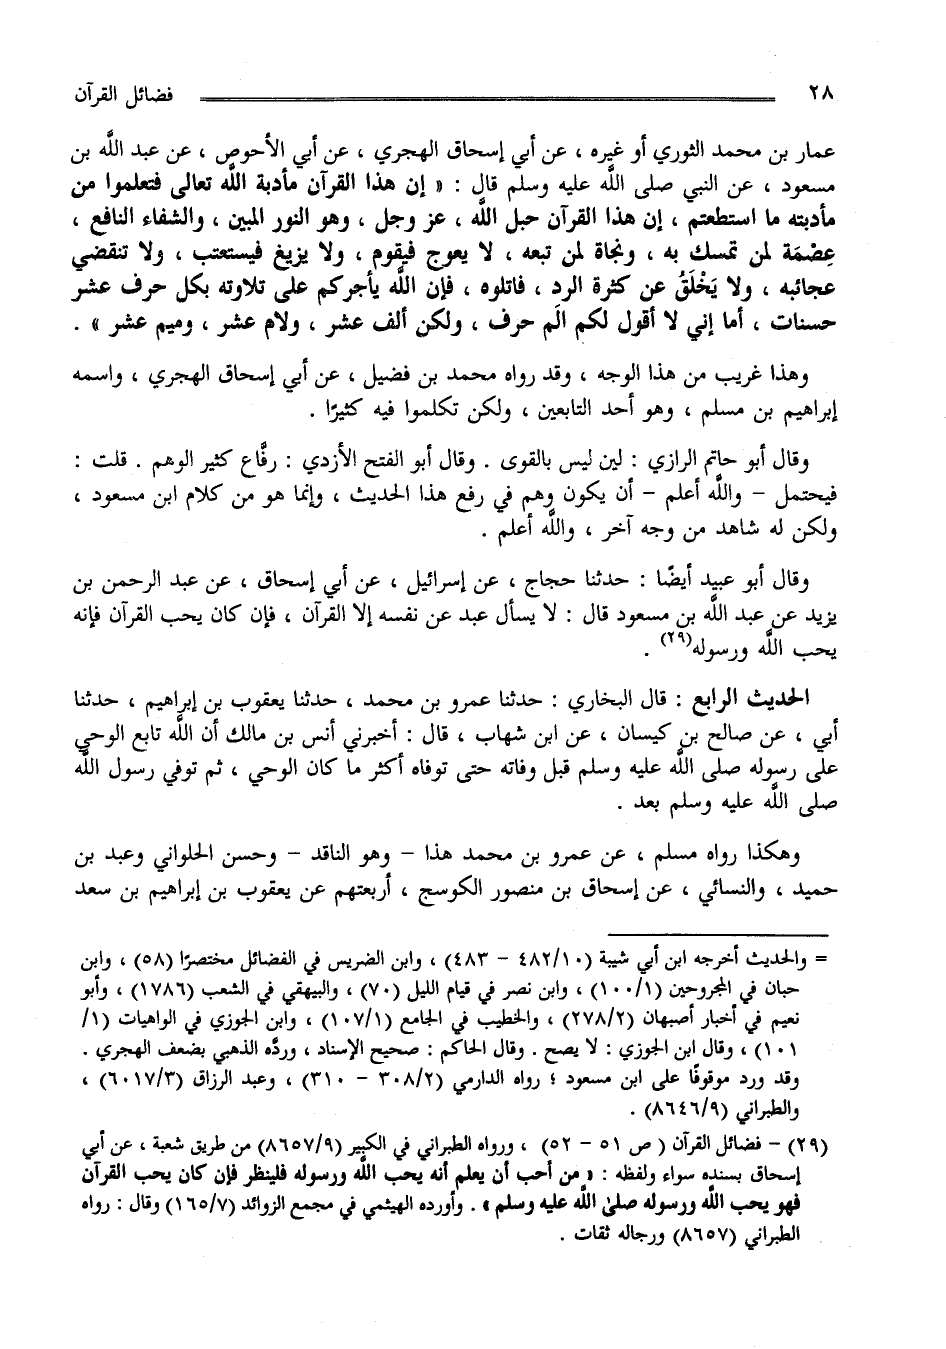 ٢٨ فضائل القرآن
عمار بن محمد الثوري أو غيره ، عن أبي إسحاق الهجري ، عن أبي الأحوص ، عن عبد اللَّه بن
مسعود ، عن النبي صلى اللَّه عليه وسلم قال : « إن هذا القرآن مأدبة اللَّه تعالى فتعلموا من
مأدبته ما استطعتم ، إن هذا القرآن حبل اللَّه ، عز وجل ، وهو النور المبين ، والشفاء النافع ،
عِصْمَة لمن تمسك به ، ونجاة لمن تبعه ، لا يعوج فيقوم ، ولا يزيغ فيستعتب ، ولا تنقضي
عجائبه ، ولا يَخْلَقُ عن كثرة الرد ، فاتلوه ، فإن اللَّه يأجركم على تلاوته بكل حرف عشر
حسنات ، أما إني لا أقول لكم الَم حرف ، ولكن ألف عشر ، ولام عشر ، وميم عشر » .
وهذا غريب من هذا الوجه ، وقد رواه محمد بن فضيل ، عن أبي إسحاق الهجري ، واسمه
إبراهيم بن مسلم ، وهو أحد التابعين ، ولكن تكلموا فيه كثيرًا .
وقال أبو حاتم الرازي : لين ليس بالقوى . وقال أبو الفتح الأزدي : رفَّاع كثير الوهم . قلت :
فيحتمل – واللَّه أعلم – أن يكون وهم في رفع هذا الحديث ، وإنما هو من كلام ابن مسعود ،
ولكن له شاهد من وجه آخر ، واللَّه أعلم .
وقال أبو عبيد أيضًا : حدثنا حجاج ، عن إسرائيل ، عن أبي إسحاق ، عن عبد الرحمن بن
يزيد عن عبد اللَّه بن مسعود قال : لا يسأل عبد عن نفسه إلا القرآن ، فإن كان يحب القرآن فإنه
يحب اللَّه ورسوله(٢٩) .
الحديث الرابع : قال البخاري : حدثنا عمرو بن محمد ، حدثنا يعقوب بن إبراهيم ، حدثنا
أبي ، عن صالح بن كيسان ، عن ابن شهاب ، قال : أخبرني أنس بن مالك أن اللَّه تابع الوحي
على رسوله صلى اللَّه عليه وسلم قبل وفاته حتى توفاه أكثر ما كان الوحي ، ثم توفي رسول اللَّه
صلى اللَّه عليه وسلم بعد .
وهكذا رواه مسلم ، عن عمرو بن محمد هذا – وهو الناقد – وحسن الحلواني وعبد بن
حميد ، والنسائي ، عن إسحاق بن منصور الكوسج ، أربعتهم عن يعقوب بن إبراهيم بن سعد
= والحديث أخرجه ابن أبي شيبة (٤٨٢/١٠ – ٤٨٣) ، وابن الضريس في الفضائل مختصرًا (٥٨) ، وابن
حبان في المجروحين (١٠٠/١) ، وابن نصر في قيام الليل (٧٠) ، والبيهقي في الشعب (١٧٨٦) ، وأبو
نعيم في أخبار أصبهان (٢٧٨/٢) ، والخطيب في الجامع (١٠٧/١) ، وابن الجوزي في الواهيات (١/
١٠١) ، وقال ابن الجوزي : لا يصح . وقال الحاكم : صحيح الإسناد ، وردَّه الذهبي بضعف الهجري .
وقد ورد موقوفًا على ابن مسعود ؛ رواه الدارمي (٣٠٨/٢ – ٣١٠) ، وعبد الرزاق (٦٠١٧/٣) ،
والطبراني (٨٦٤٦/٩) .
(٢٩) – فضائل القرآن ( ص ٥١ – ٥٢) ، ورواه الطبراني في الكبير (٨٦٥٧/٩) من طريق شعبة ، عن أبي
إسحاق بسنده سواء ولفظه : « من أحب أن يعلم أنه يحب اللَّه ورسوله فلينظر فإن كان يحب القرآن
فهو يحب اللَّه ورسوله صلى اللَّه عليه وسلم » . وأورده الهيثمي في مجمع الزوائد (١٦٥/٧) وقال : رواه
الطبراني (٨٦٥٧) ورجاله ثقات .